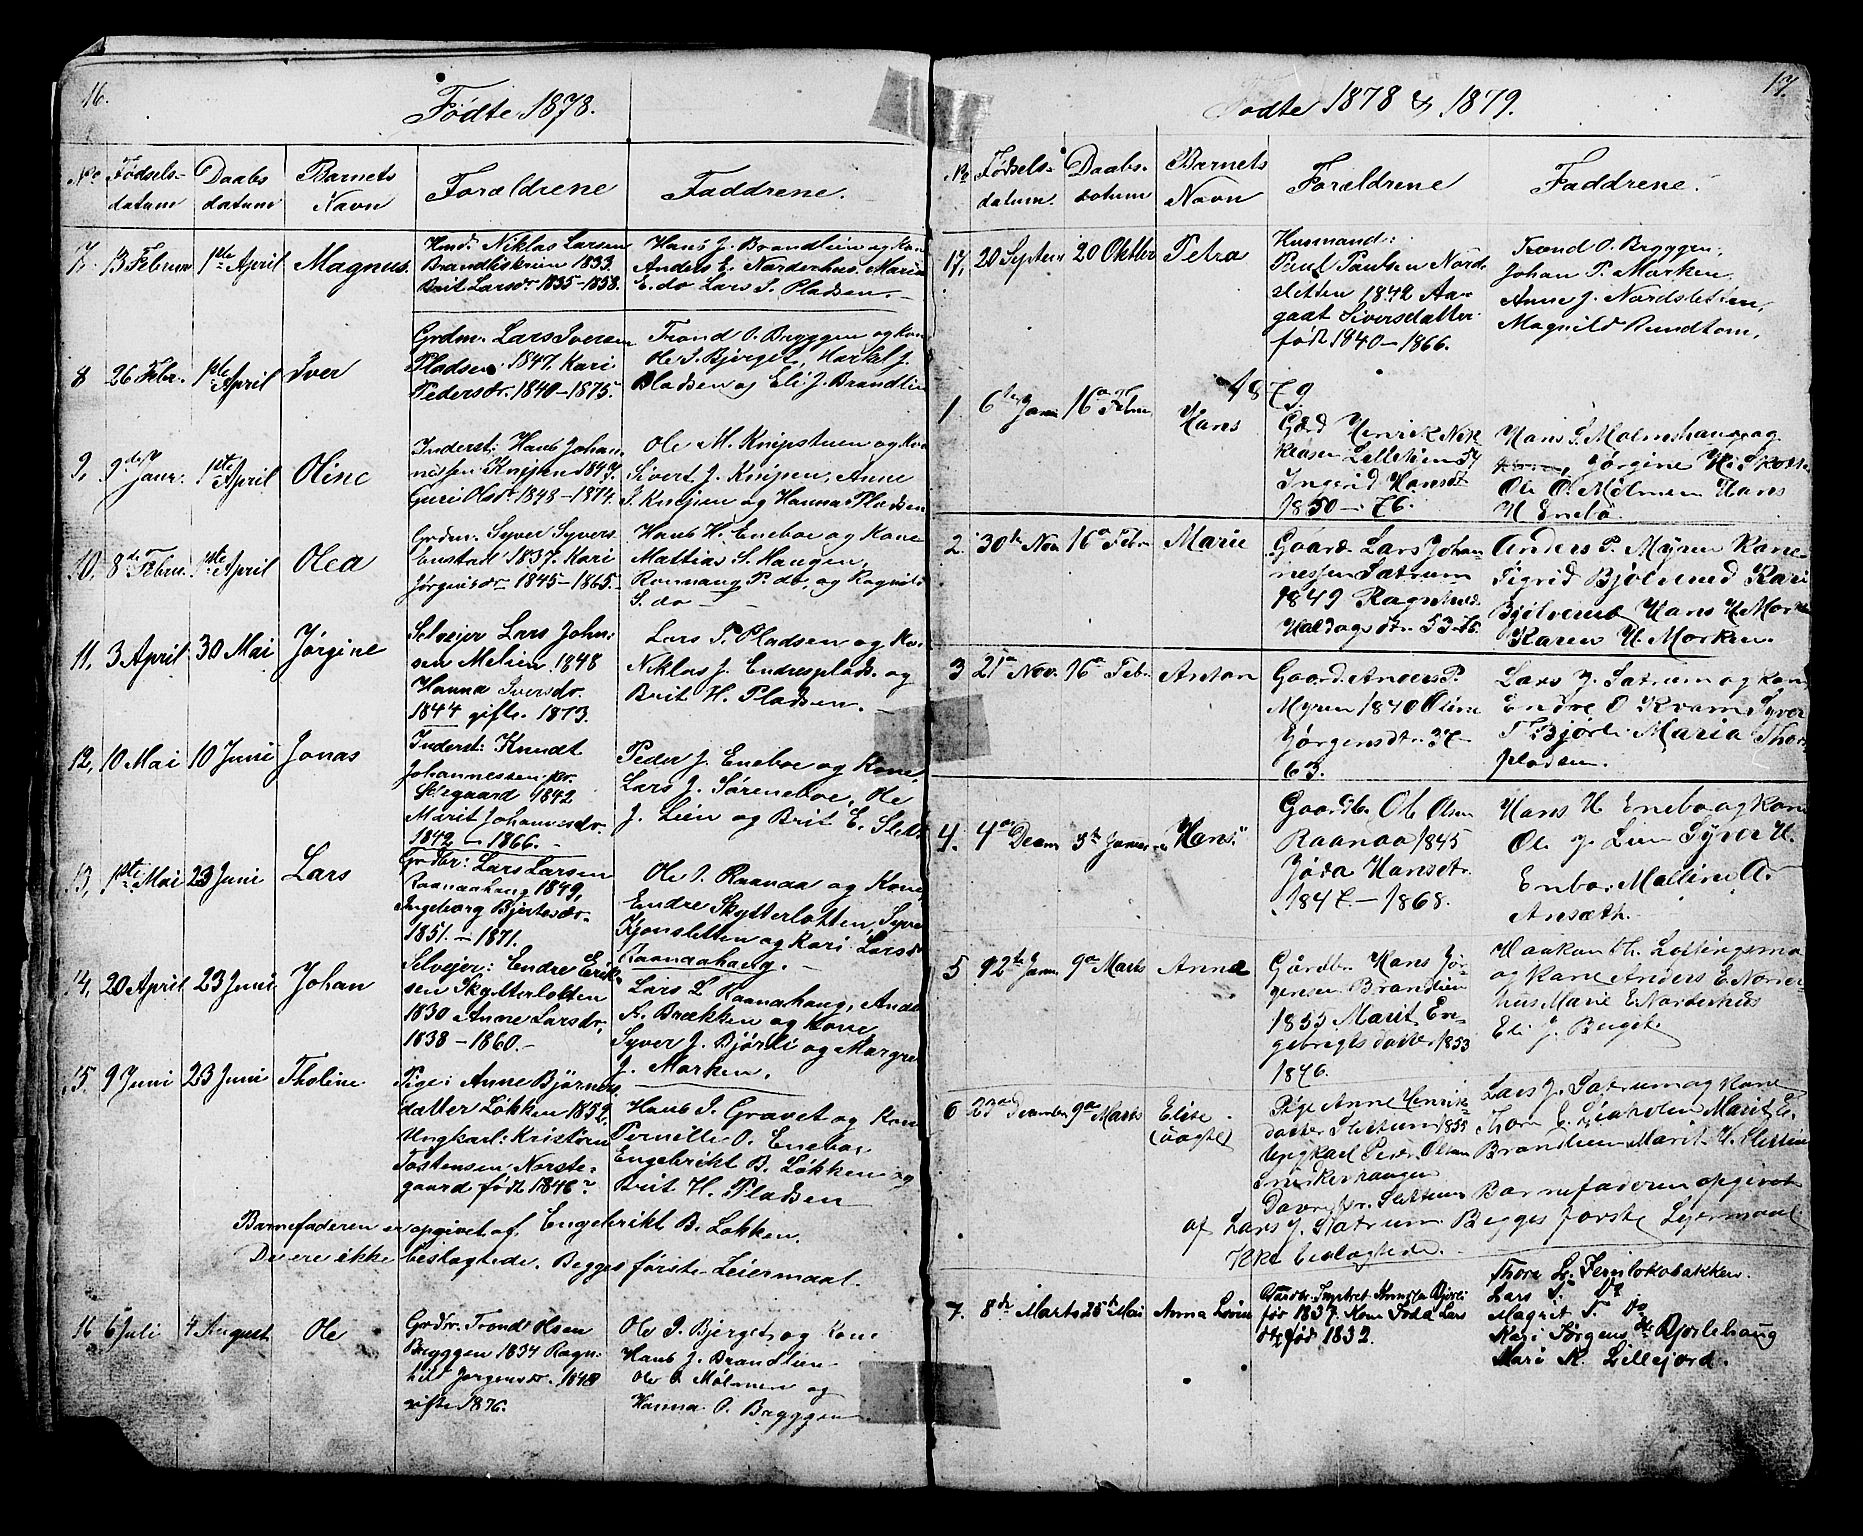 16.
Fødte 1878.
No Fødsels-datum Daabs datum Barnets Navn Forældrene Faddrene.
7. 13 Februar 1ste April Magnus.
Hmd. Niklas Larsen
Brandliskrien 1833.
Brit Larsdr. 1835-1858.
Hans J. Brandlien og Kone
Anders E. Norderhus, Maria
E. do Lars I. Pladsen.
8 26 Febr. 1ste April Iver
Grdm. Lars Iversen
Pladsen 1847. Kari
Pedersdr. 1840-1875.
Trond O. Bryggen og kone
Ole I. Bjerget,
Pladsen og Eli J. Brandlien
9, 9de Janr. 1ste April Oline
Inderst: Hans Johan-
nessen Knipen 1847.
Guri Olsdr. 1848-1874.
Ole M. Knipstuen og Kone
Sivert J. Knipen, Anne
J. Knipen og Hanna Pladsen
10. 8de Febru. 1ste April Olea
Grdm. Syver Syvers.
Enstad 1837. Kari
Jørgensdr 1845-1865.
Hans H. Eneboe og Kone
Mathias S. Haugen,
Ronnaug P. do. og Ragnild
S. do
11, 3 April 30 Mai Jørgine
Selvejer Lars John-
sen Melien 1848
Hanna Iversdr.
1844 gifte 1873.
Lars P. Pladsen og Ka-
Niklas J. Endresplads. og
Brit H. Pladsen.
12, 10 Mai 10 Juni Jonas
Inderst: Knudt
Johannessen
1842
Marit Johannesdr.
1842 - 1866.
Peder J. Eneboe og Kone
Lars J. Søreneboe, Ole
J. Lien og Brit E. Slette
13, 1ste Mai 23 Juni Lars
Grdbr: Lars Larsen
Raanaahaug 1849,
Ingeborg Bjertesdr.
1851. - 1871.
Ole O. Raanaa og Kone,
Endre Skytterlotten, Syver
Kjonsletten og Kari Larsdr
Raanaahaug.
14, 20 April 23 Juni Johan
Selvejer: Endre Erik-
sen Skytterlotten
1830 Anne Larsdr,
1838 - 1860.
Lars L. Raanahaug, Anders
A. Brækken og Kone
Syver J. Bjørli og Margre
J. Morken.
15. 9 Juni 23 Juni Tholine
Pige: Anne Bjørns
datter Løkken 1852.
Ungkarl: Kristøren
Tostensen Norste-
gaard født 1848?
Hans I. Gravet og Kone
Pernille O. Eneboe
Engebrikt B. Løkken og
Brit H. Pladsen
Barnefaderen er opgivet af Engebrikt B. Løkken.
De ere ikke beslægtede. Begges første Leiermaal.
16 6 Juli 4 August Ole
Grdbr. Trond Olsen
Bryggen 1834 Ragn-
hild Jørgensdr. 1848
gifte 1876.
Ole I. Bjerget, og Kone
Hans J. Brandlien
Ole O. Mølmen og
Hanna O. Bryggen
17.
Fødte 1878 & 1879.
No Fødsels-datum. Daabs-datum Barnets Navn Forældrene Faddrene.
17, 20 Septem 20 Oktber Petra
Husmand:
Paul Paulsen Nord-
sletten 1842 Aa-
gaat Siversdatter
født 1840-1866.
Trond O. Bryggen,
Johan P. Morken,
Anne J. Nordsletten,
Magnild Rundtom,
1879.
1. 6te Janu 16a Febru Hans
Gaard Henrik Nik-
lasen Lillelien 54
Ingrid Hansdt
1850-76.
Hans P. Molmshaug og
Kone, Jørgine H. Skotte
Ole O. Mølmen Hans
H Enebø
2. 30te Nov 16a Febr Marie
Gaard. Lars Johan-
nessen Satrum
1849 Ragnhild
Haldogsdtr. 53-76
Anders P. Myren Kone
Sigrid Bjølverud Kari
Bjølverud Hans H Morken
Karen H Morken.
3 21a Nov. 16a Febr Anton
Gaard. Anders P.
Myren 1840 Oline
Jørgensdtr 37
63.
Lars J. Satrum og kone
Endre O Kvam Syver
T Bjørli Maria Thor
pladsen.
4. 4a Decem 5te Januar Hans
Gaardbr. Ole Olsen
Raanaa 1845
Jøda Hansdtr.
1847-1868.
Hans H Enebo og kone
Ole J. Lien Syver H.
Enbo Mattine A
Ansæth.
5 12te Janu 9a Marts Anne
Gårdbr Hans Jør-
gensen Brandlien
1855 Marit En-
gebrigtsdatter 1853
1876.
Haakon Th. Lossingsmo
og Kone Anders E Norder-
hus Marie E Norderhus
Eli J. Bergit
6 23de December 9a Marts Elise (uægte)
Pige Anne Henriks-
datter Slettum 1855
Ungkarl Peder Olsen
Snerkerhaugen
Dovre
Lars J. Satrum og Kone
Thore E. Lieholen Marit E.
Brandlien Marit H. Slettum
Barnefaderen opgivet
af Lars J. Satrum Begges første Lejermaal
Ikke beslægtede.
7. 8de Marts 25te Mai Anna Lovise
Gaardbr. Bjørli
før 1837. Kone Joda Lars
dtr. fød 1832.
Thore L. Fernlokobakken.
Lars T. Do
Magrit T. Do
Kari Jørgensdtr Bjørlehaug
Mari K. Lillejord.